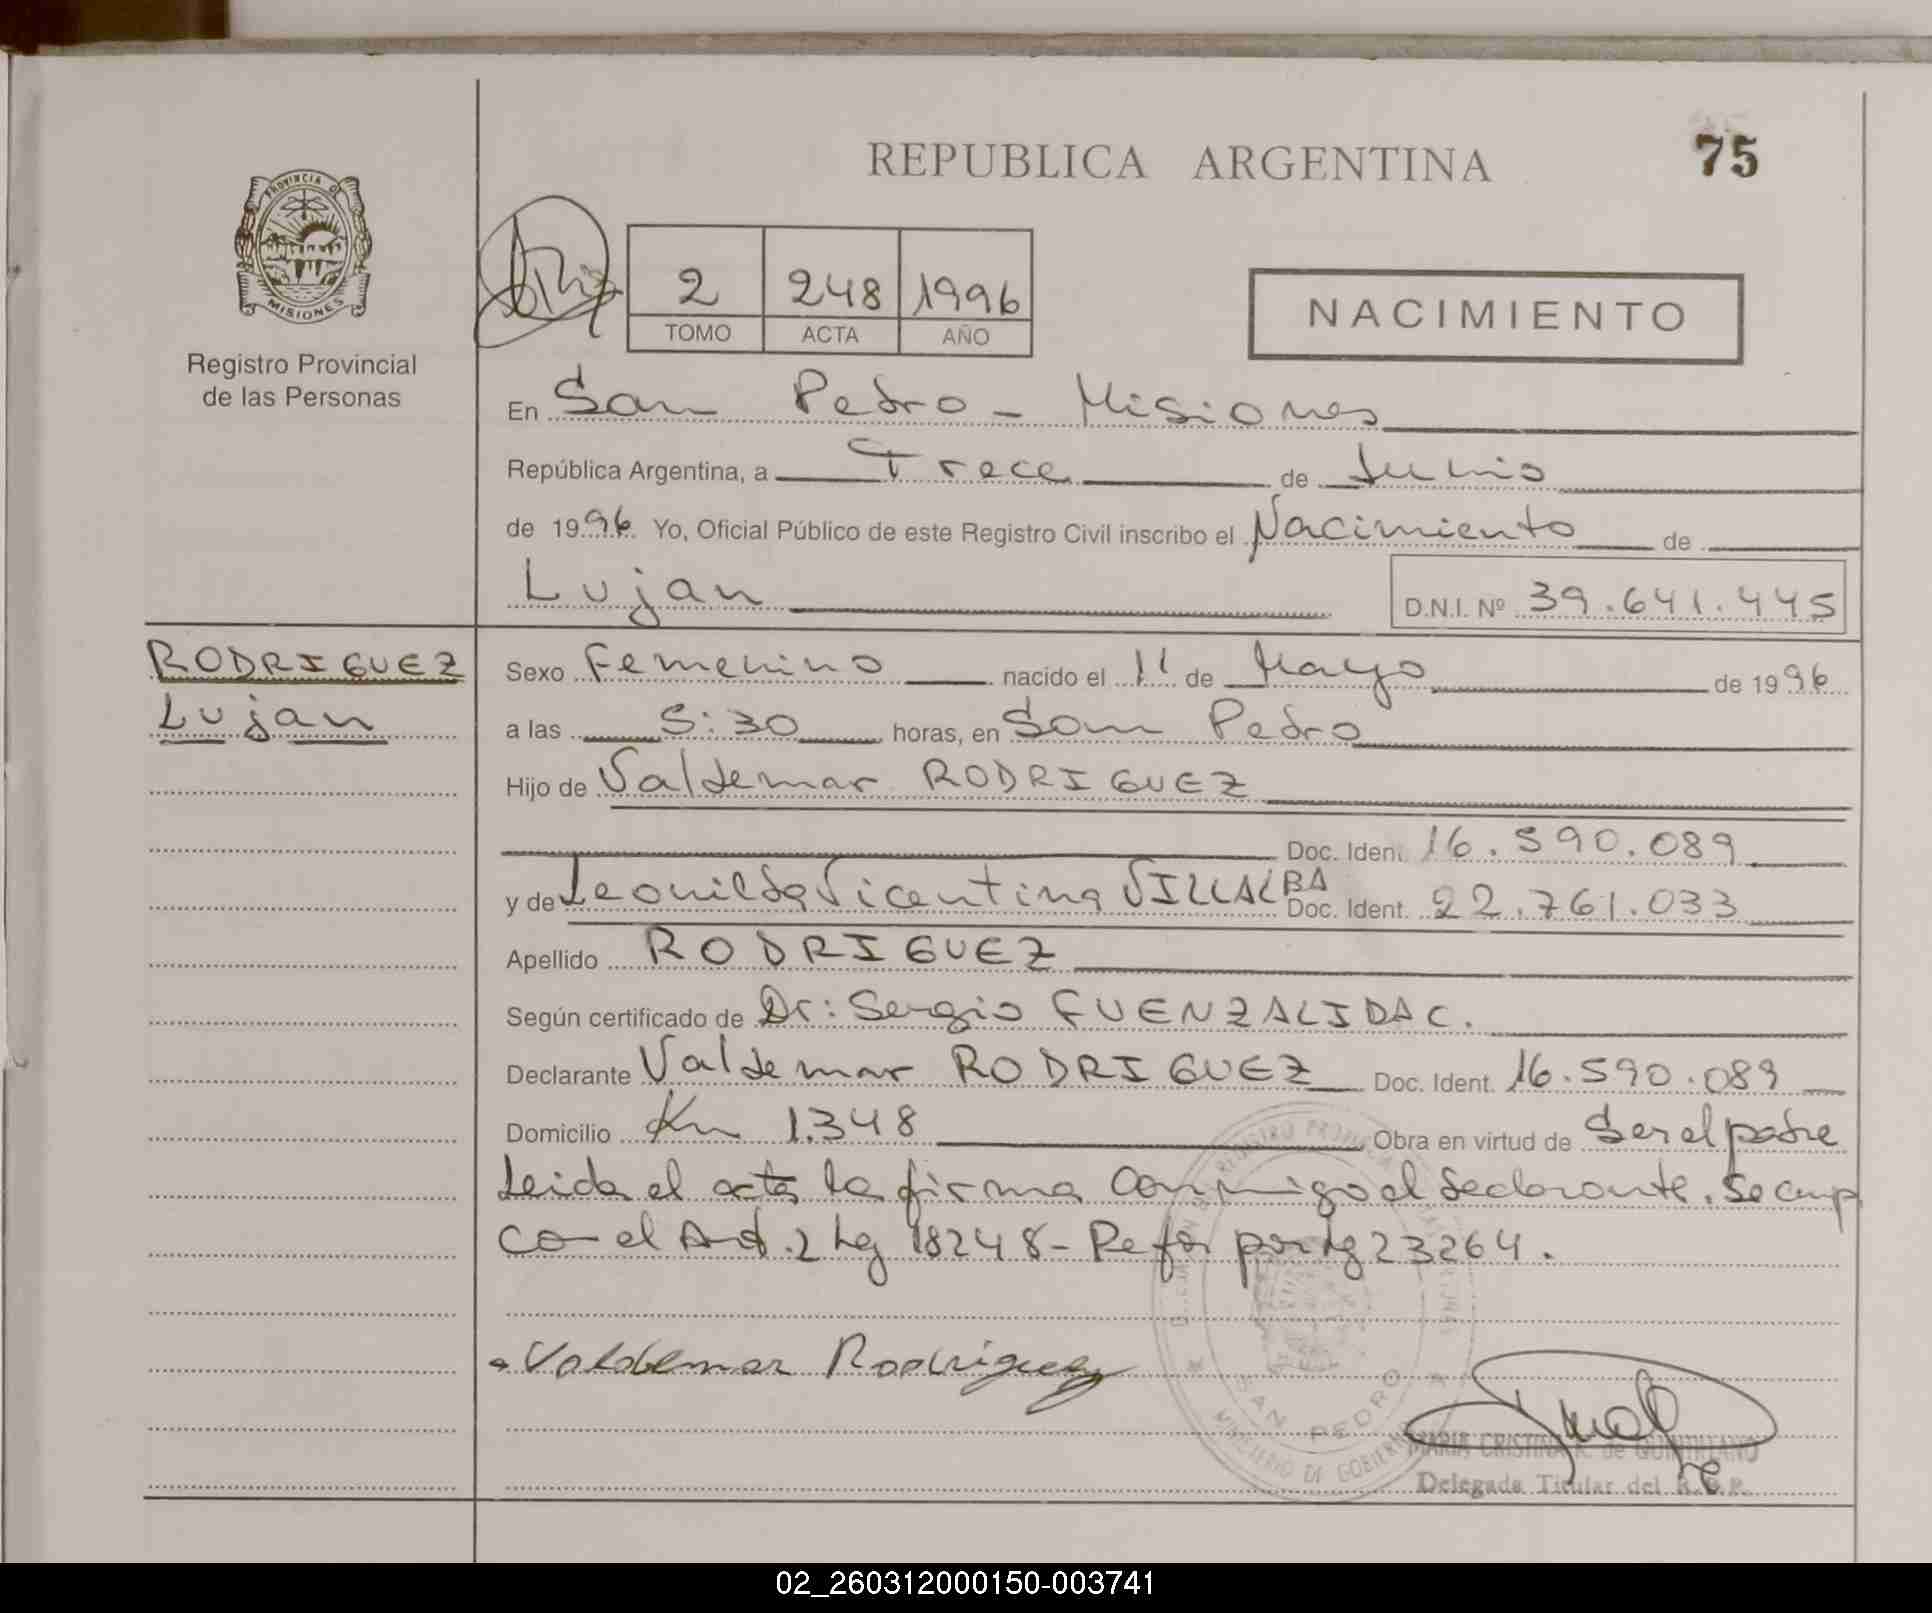 REPUBLICA ARGENTINA
75
PROVINCIA DE
MISIONES
Registro Provincial
de las Personas
2 248 1996
TOMO ACTA AÑO
NACIMIENTO
En San Pedro - Misiones
República Argentina, a Trece de Junio
de 1996 Yo, Oficial Público de este Registro Civil inscribo el Nacimiento de
Lujan D.N.I. Nº 39.641.445
RODRIGUEZ
Lujan
Sexo Femenino nacido el 11 de Mayo de 1996
a las 5:30 horas, en San Pedro
Hijo de Valdemar RODRIGUEZ
Doc. Ident. 16.590.089
y de Leonilda Vicentina VILLALBA Doc. Ident. 22.761.033
Apellido RODRIGUEZ
Según certificado de Dr: Sergio FUENZALIDA C.
Declarante Valdemar RODRIGUEZ Doc. Ident. 16.590.089
Domicilio Km 1.348 Obra en virtud de Ser el padre
Leida el acta la firma conmigo el declarante. Se cump
con el Art. 2 Ley 18248 - Refor por Ley 23264.
Valdemar Rodriguez
SAN PEDRO
MINISTERIO DE GOBIERNO
MARIA CRISTINA R. de QUINTILIANO
Delegada Titular del R.C.P.
02_260312000150-003741